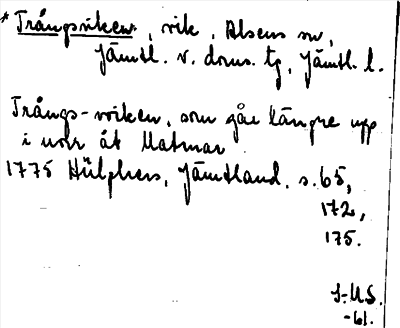 * Trångsviken, vik, Alsens sn,
Jämtl. v. doms. tg, Jämtl. l.
Trångs-wiken, som går längre upp
i norr åt Matmar
1775 Hülphers, Jämtland, s. 65,
172,
175.
J-U.S.
-61.